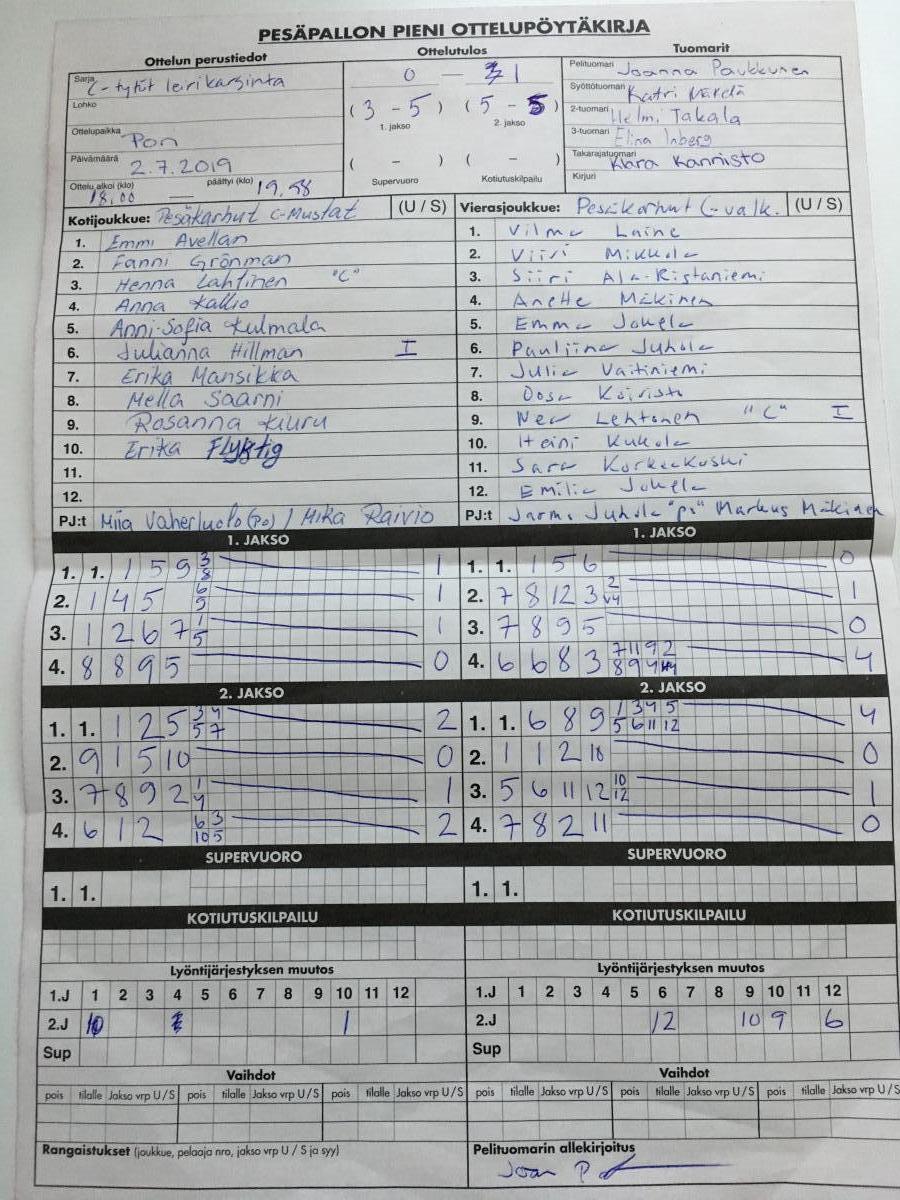 PESÄPALLON PIENI OTTELUPÖYTÄKIRJA
Ottelun perustiedot Ottelutulos Tuomarit
Sarja C-tytöt leirikarsinta
Lohko
Ottelupaikka Pori
Päivämäärä 2.7.2019
Ottelu alkoi (klo) 18.00 päättyi (klo) 19.58
0 — 1
(3 - 5) (5 - 5)
1. jakso 2. jakso
( - ) ( - )
Supervuoro Kotiutuskilpailu
Pelituomari Joanna Paukkunen
Syöttötuomari Katri Närdä
2-tuomari Helmi Takala
3-tuomari Elina Inberg
Takarajatuomari Klara Kannisto
Kirjuri
Kotijoukkue: Pesäkarhut C-Mustat (U / S)
1. Emmi Avellan
2. Fanni Grönman
3. Henna Lahtinen "C"
4. Anna Kallio
5. Anni-Sofia Kulmala
6. Julianna Hillman I
7. Erika Mansikka
8. Mella Saarni
9. Rosanna Kiuru
10. Erika Flyktig
11.
12.
PJ:t Miia Vaherluoto (po) / Mika Raivio
Vierasjoukkue: Pesäkarhut C-valk. (U / S)
1. Vilma Laine
2. Viivi Mikkola
3. Siiri Ala-Ristaniemi
4. Anette Mäkinen
5. Emma Jokela
6. Pauliina Juhola
7. Julia Vaitiniemi
8. Oosa Koivisto
9. Nea Lehtonen "C" I
10. Heini Kukola
11. Sara Korkeakoski
12. Emilia Jokela
PJ:t Jarmo Juhola "pj" Markus Mäkinen
1. JAKSO 1. JAKSO
1. 1. 1 5 9 3 8 1
2. 1 4 5 6 5 1
3. 1 2 6 7 1 5 1
4. 8 8 9 5 0
1. 1. 1 5 6 0
2. 7 8 12 3 2 v4 1
3. 7 8 9 5 0
4. 6 6 8 3 7 11 9 2 8 9 4 4
2. JAKSO 2. JAKSO
1. 1. 1 2 5 3 4 5 7 2
2. 9 1 5 10 0
3. 7 8 9 2 1 4 1
4. 6 1 2 6 3 10 5 2
1. 1. 6 8 9 1 3 4 5 5 6 11 12 4
2. 1 1 2 10 0
3. 5 6 11 12 10 12 1
4. 7 8 2 11 0
SUPERVUORO SUPERVUORO
1. 1. 1. 1.
KOTIUTUSKILPAILU KOTIUTUSKILPAILU
Lyöntijärjestyksen muutos Lyöntijärjestyksen muutos
1.J 1 2 3 4 5 6 7 8 9 10 11 12 1.J 1 2 3 4 5 6 7 8 9 10 11 12
2.J 10 1 2.J 12 10 9 6
Sup Sup
Vaihdot Vaihdot
pois tilalle Jakso vrp U / S pois tilalle Jakso vrp U / S pois tilalle Jakso vrp U / S pois tilalle Jakso vrp U / S
Rangaistukset (joukkue, pelaaja nro, jakso vrp U / S ja syy) Pelituomarin allekirjoitus
Joan P